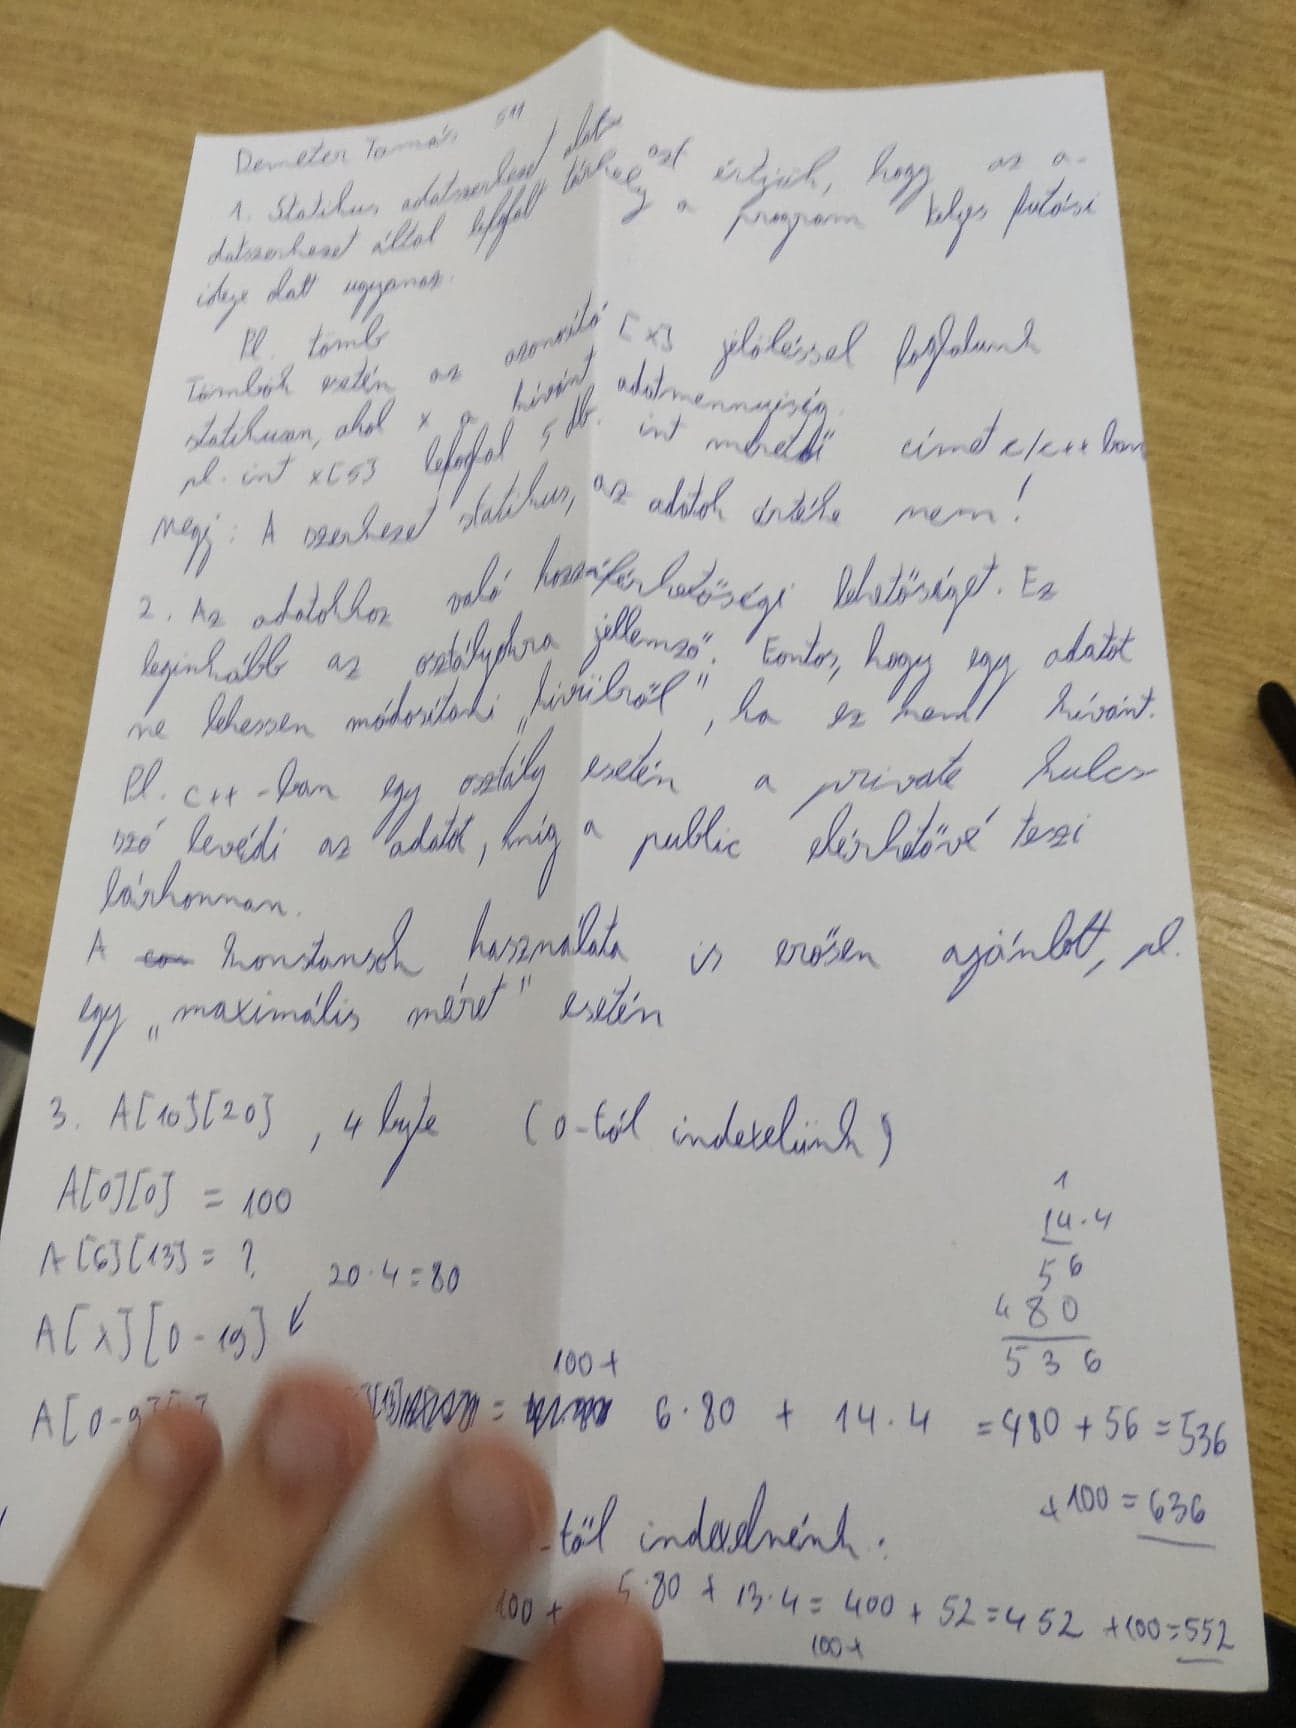 Demeter Tamás 511
1. Statikus adatszerkezet alatt azt értjük, hogy az a-
datszerkezet által lefoglalt tárhely a program teljes futási
ideje alatt ugyanaz.
Pl. tömb
Tömbök esetén az azonosító [x] jelöléssel foglalunk
statikusan, ahol x a kívánt adatmennyiség.
pl. int x[5] lefoglal 5 db. int méretű címet c/c++ ban
Megj: A szerkezet statikus, az adatok értéke nem!
2. Az adatokhoz való hozzáférhetőségi lehetőséget. Ez
leginkább az osztályokra jellemző. Fontos, hogy egy adatot
ne lehessen módosítani „kívülről", ha ez nem kívánt.
Pl. c++ -ban egy osztály esetén a private kulcs
szó levédi az adatot, míg a public elérhetővé teszi
bárhonnan.
A konstansok használata is erősen ajánlott, pl.
egy „maximális méret" esetén
3. A[10][20], 4 byte (0-tól indexelünk)
A[0][0] = 100
A[6][13] = ?
20·4=80
A[x][0-19] ↙
1
14·4
56
480
536
100+
A[0-9] = 6·80 + 14·4 = 480 + 56 = 536
+100 = 636
-től indexelnénk:
100 + 5·80 + 13·4 = 400 + 52 = 452 +100=552
100+